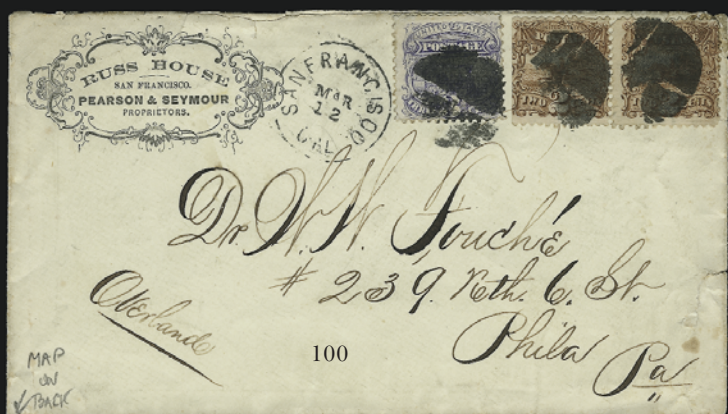 RUSS HOUSE
SAN FRANCISCO.
PEARSON & SEYMOUR
PROPRIETORS.
SAN FRANCISCO
MAR
12
CAL
UNITED STATES
POSTAGE
Dr. W. W. Fouché
# 239. Nth. 6. St.
Phila
Pa
Overland
100
MAP
ON
BACK